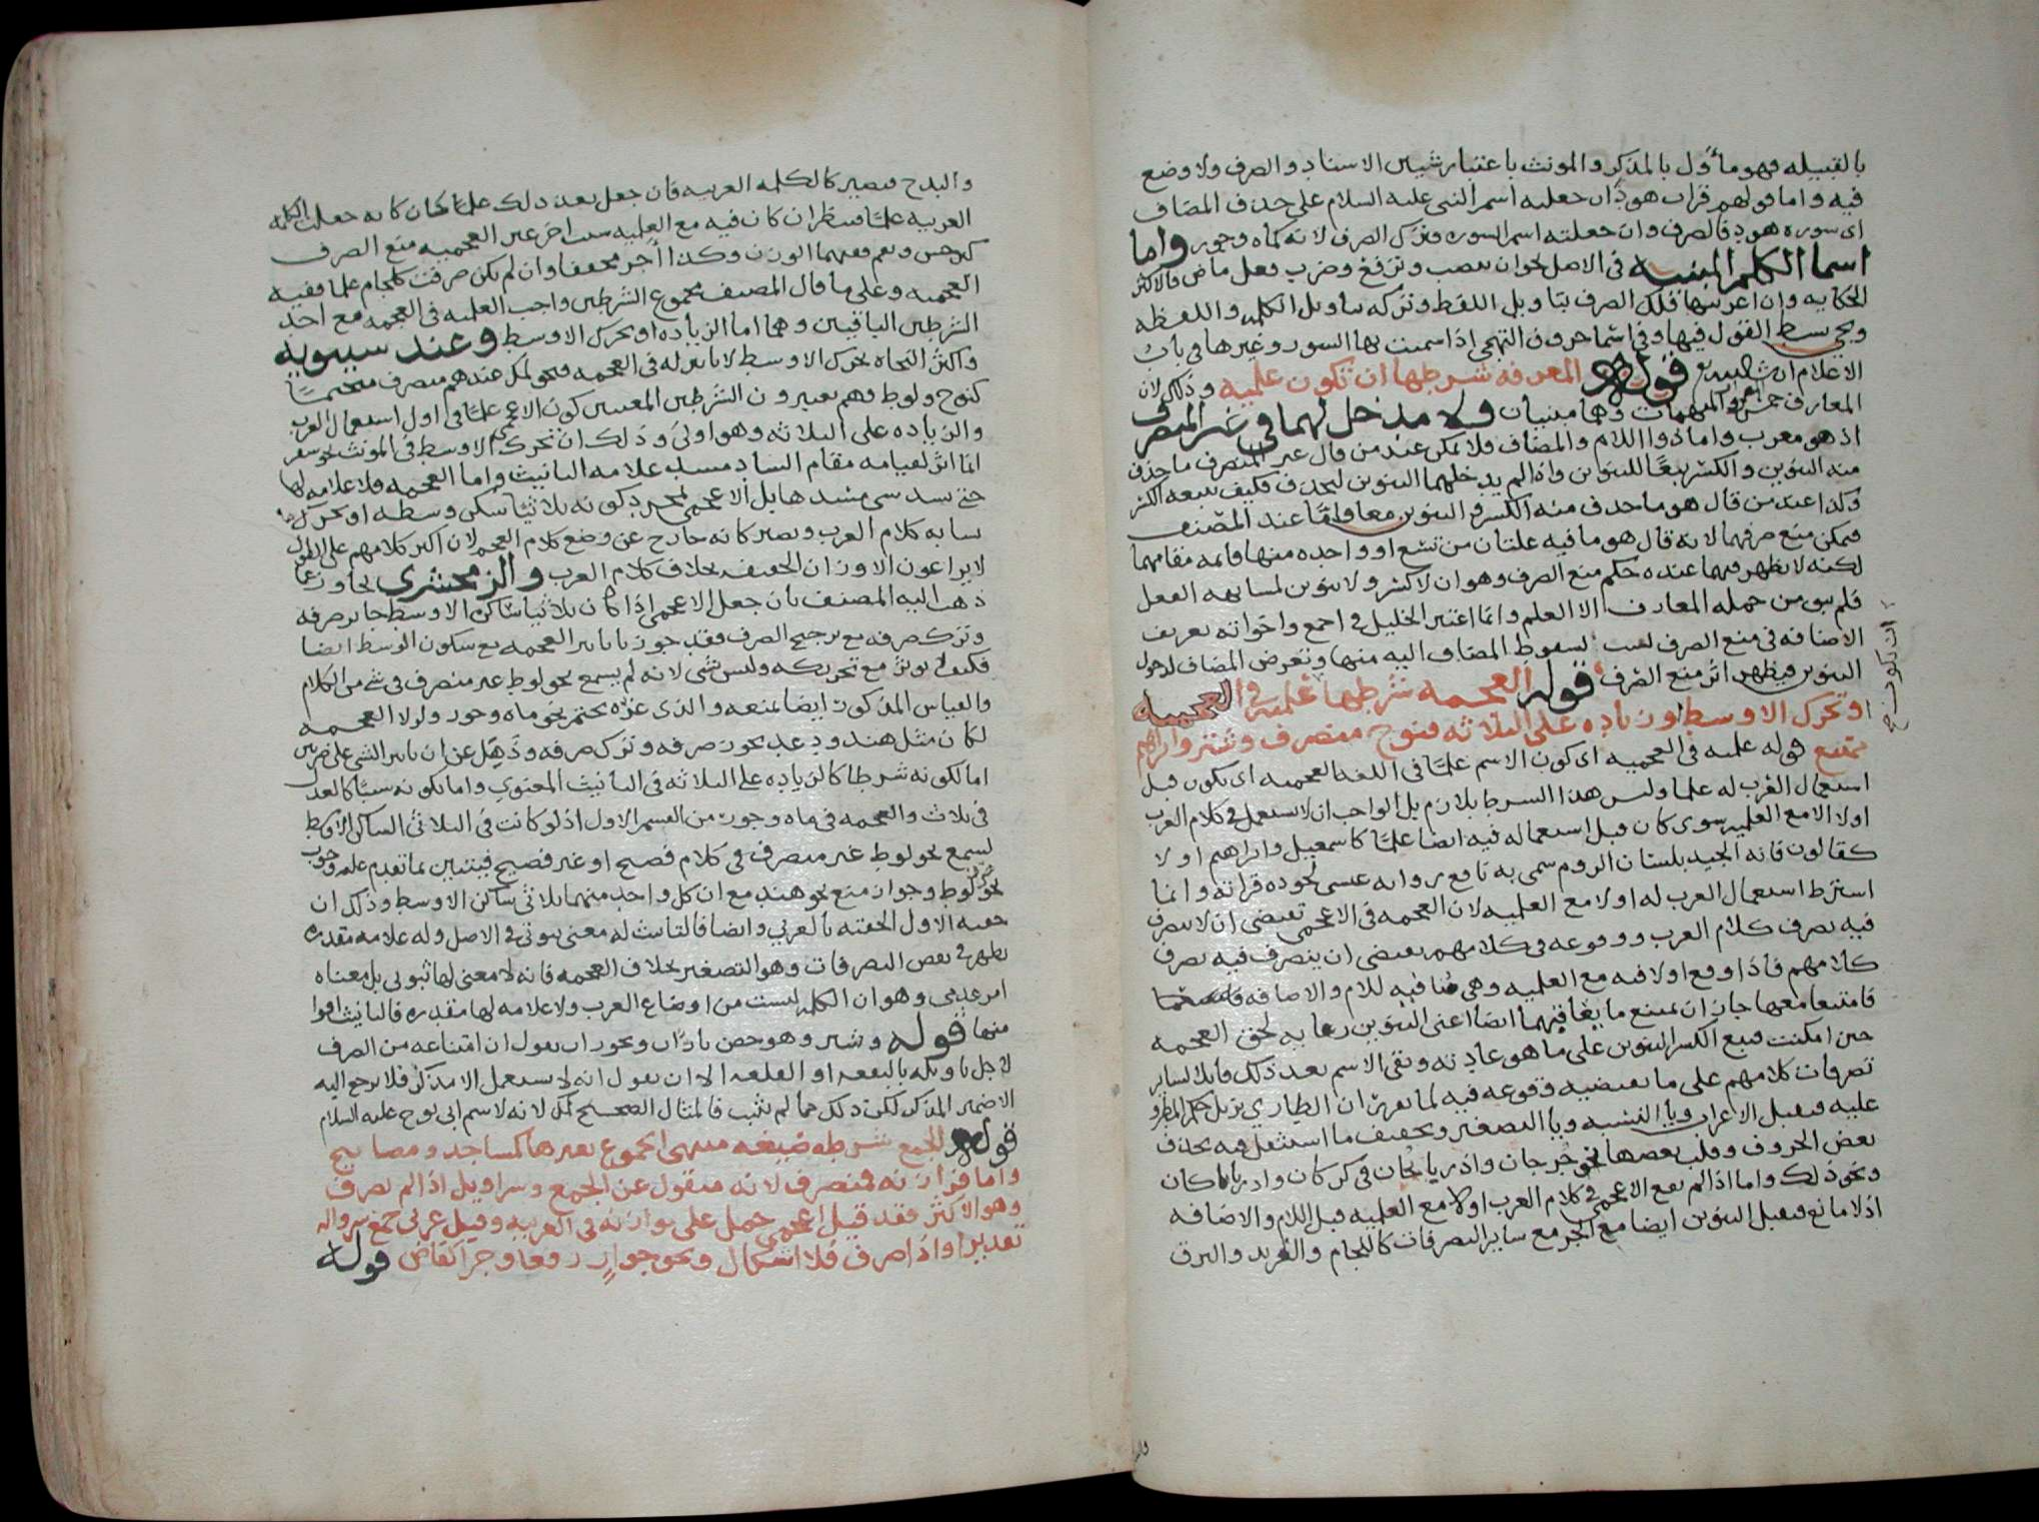 بالقبيله فهو مأول بالمذكر والمونث باعتبار شيين الاسناد والصرف ولا وضع
فيه واما قولهم قرات هودا ان جعلته اسم النبى عليه السلام على حذف المضاف
اى سوره هود فالصرف وان جعلته اسم السوره فترك الصرف لانه كماه وجور واما
اسما الكلم المبنيه فى الاصل نحو ان تنصب وترفع وضرب فعل ماض فالاكثر
الحكايه وان اعربتها فلك الصرف بتاويل اللفظ وتركه بتاويل الكلمه واللفظه
ويجى بسط القول فيها وفى اسما حروف التهجى اذا سميت بها السور وغيرها فى باب
الاعلام ان شا الله تع قوله المعرفه شرطها ان تكون علميه وذلك لان
المعارف خمس المضمرات والمبهمات وهما مبنيان ولا مدخل لهما فى غير المنصرف
اذ هو معرب واما ذو اللام والمضاف فلا يمكن عند من قال غير المنصرف ما حذف
منه التنوين والكسر تبعًا للتنوين واذ لم يدخلهما التنوين ليحذف فكيف يتبعه الكسر
وكذا عند من قال هو ما حذف منه الكسر والتنوين معا واما عند المصنف
فيمكن منع صرفهما لانه قال هو ما فيه علتان من تسع او واحده منها قايمه مقامهما
لكنه لا يظهر فيهما عنده حكم منع الصرف وهو ان لا كسر ولا تنوين لمشابهه الفعل
فلم يبق من جمله المعارف الا العلم وانما اعتبر الخليل فى اجمع واخواته تعريف
الاضافه فى منع الصرف لسقوط المضاف اليه منها وتعرض المضاف لدخول
التنوين فيظهر اثر منع الصرف قوله العجمه شرطها علميه فى العجميه
او تحرك الاوسط او زياده على الثلاثه فنوح منصرف وشتر وابراهيم
ممتنع قوله علميه فى العجميه اى كون الاسم علمًا فى اللغه العجميه اى يكون قبل
استعمال العرب له علما وليس هذا الشرط بلازم بل الواجب ان لا يستعمل فى كلام العرب
اولا الا مع العلميه سوى كان قبل استعماله فيه ايضا علمًا كاسمعيل وابراهيم او لا
كقالون فانه الجيد بلسان الروم سمى به نافع راويه عيسى لجوده قراته وانما
اشترط استعمال العرب له اولا مع العلميه لان العجمه فى الاعجمى تقتضى ان لا يتصرف
فيه تصرف كلام العرب ووقوعه فى كلامهم يقتضى ان يتصرف فيه تصرف
كلامهم فاذا وقع اولا فيه مع العلميه وهى منافيه للام والاضافه
فامتنعا معها جاز ان يمتنع ما يعاقبهما ايضا اعنى التنوين رعايه لحق العجمه
حين امكنت فيتبع الكسر التنوين على ما هو عادته وبقى الاسم بعد ذلك قابلا لساير
تصرفات كلامهم على ما يقتضيه وقوعه فيه لما تقرر ان الطارى يزيل حكم المطرو
عليه فيقبل الاعراب ويا النسبه ويا التصغير وتخفيف ما استثقل فيه بحذف
بعض الحروف وقلب بعضها نحو جرجان واذربايجان فى كركان واذربايكان
ونحو ذلك واما اذا لم يقع الاعجمى فى كلام العرب اولا مع العلميه قبل اللام والاضافه
اذ لا مانع فيقبل التنوين ايضا مع الجر مع ساير التصرفات كاللجام والفرند والبرق
والبدح فيصير كالكلمه العربيه فان جعل بعد ذلك علمًا كان كانه جعلت الكلمه
العربيه علمًا فينظر ان كان فيه مع العلميه سبب اخر غير العجميه منع الصرف
كنرجس وبقم ففيهما الوزن وكذا اآجر مخففا وان لم يكن صرفت كلجام علما ففيه
العجميه وعلى ما قال المصنف مجموع الشرطين واجب العلميه فى العجمه مع احد
الشرطين الباقيين وهما اما الزياده او تحرك الاوسط وعند سيبويه
واكثر النحاه تحرك الاوسط لا تاثير له فى العجمه فنحو لمك عندهم منصرف متحتمًا
كنوح ولوط وهم يعتبرون الشرطين المعينين كون الاعجمى علمًا فى اول استعمال العرب
والزياده على الثلاثه وهو اولى وذلك ان تحرك الاوسط فى المونث نحو سقر
انما اثر لقيامه مقام الساد مسد علامه التانيث واما العجمه فلا علامه لها
حتى يسد شى مسدها بل الاعجمى لمجرد كونه ثلاثيا سكن وسطه او تحرك
يشابه كلام العرب ويصير كانه خارج عن وضع كلام العجم لان اكثر كلامهم على الطول
لا يراعون الاوزان الخفيفه بخلاف كلام العرب والزمخشرى تجاوز عما
ذهب اليه المصنف بان جعل الاعجمى اذا كان ثلاثيا ساكن الاوسط جايز صرفه
وترك صرفه مع ترجيح الصرف فقد جوز تاثير العجمه مع سكون الوسط ايضا
فكيف لا يوثر مع تحريكه وليس بشى لانه لم يسمع نحو لوط غير منصرف فى شى من الكلام
والقياس المذكور ايضا يمنعه والذى غره تحتم نحو ماه وجور ولولا العجمه
لكان مثل هند ودعد يجوز صرفه وترك صرفه وذهل عن ان تاثير الشى على ضربين
اما لكونه شرطا كالزياده على الثلاثه فى التانيث المعنوى واما بكونه سببًا كالعدل
فى ثلاث والعجمه فى ماه وجور من القسم الاول اذ لو كانت فى الثلاثى الساكن الاوسط
لسمع نحو لوط غير منصرف فى كلام فصيح او غير فصيح فيتبين بما تقدم عله وجوب
صرف نحو لوط وجواز منع نحو هند مع ان كل واحد منهما ثلاثى ساكن الاوسط وذلك ان
خفه الاول الحقته بالعربى وايضا فالتانيث له معنى ثبوتى فى الاصل وله علامه مقدره
يظهر فى بعض التصرفات وهو التصغير بخلاف العجمه فانه لا معنى لها ثبوتى بل معناه
امر عدمى وهو ان الكلمه ليست من اوضاع العرب ولا علامه لها مقدره فالتانيث اقوا
منها قوله وشتر وهو حصن باران ويجوز ان يقول ان امتناعه من الصرف
لاجل تاويله بالبقعه او القلعه الا ان يقول انه لا يستعمل الا مذكر فلا يرجع اليه
الا ضمير المذكر لكن ذلك مما لم يثبت فالمثال الصحيح لمك لانه لاسم ابى نوح عليه السلام
قوله الجمع شرطه صيغه منتهى الجموع بغير ها كمساجد ومصابيح
واما فرازنه فمنصرف لانه منقول عن الجمع وسراويل اذا لم يصرف
وهو الاكثر فقد قيل اعجمى حمل على موازنه فى العربيه وقيل عربى جمع سرواله
تقديرا واذا صرف فلا اشكال ونحو جوارٍ رفعا وجرا كقاض قوله